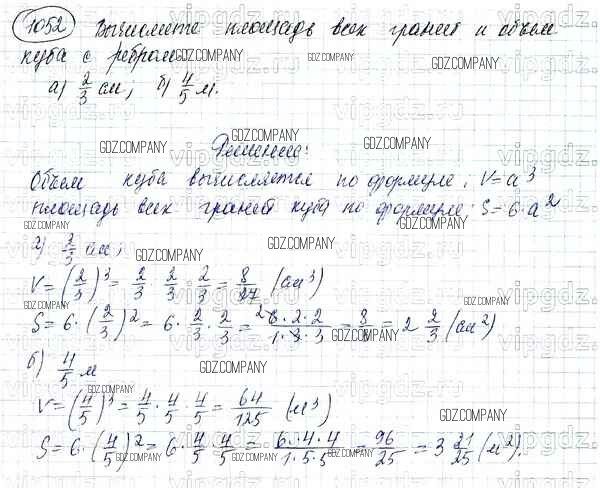 1052 Вычислите площадь всех граней и объём
куба с ребром
а) 2/3 см; б) 4/5 м.
Решение:
Объем куба вычисляется по формуле: V=a³
площадь всех граней куба по формуле: S=6·a²
а) 2/3 см;
V=(2/3)³=2/3·2/3·2/3=8/27 (см³)
S=6·(2/3)²=6·2/3·2/3=6·2·2/1·3·3=8/3=2 2/3 (см²)
б) 4/5 м
V=(4/5)³=4/5·4/5·4/5=64/125 (м³)
S=6·(4/5)²=6·4/5·4/5=6·4·4/1·5·5=96/25=3 21/25 (м²).
GDZ.COMPANY
vipgdz.